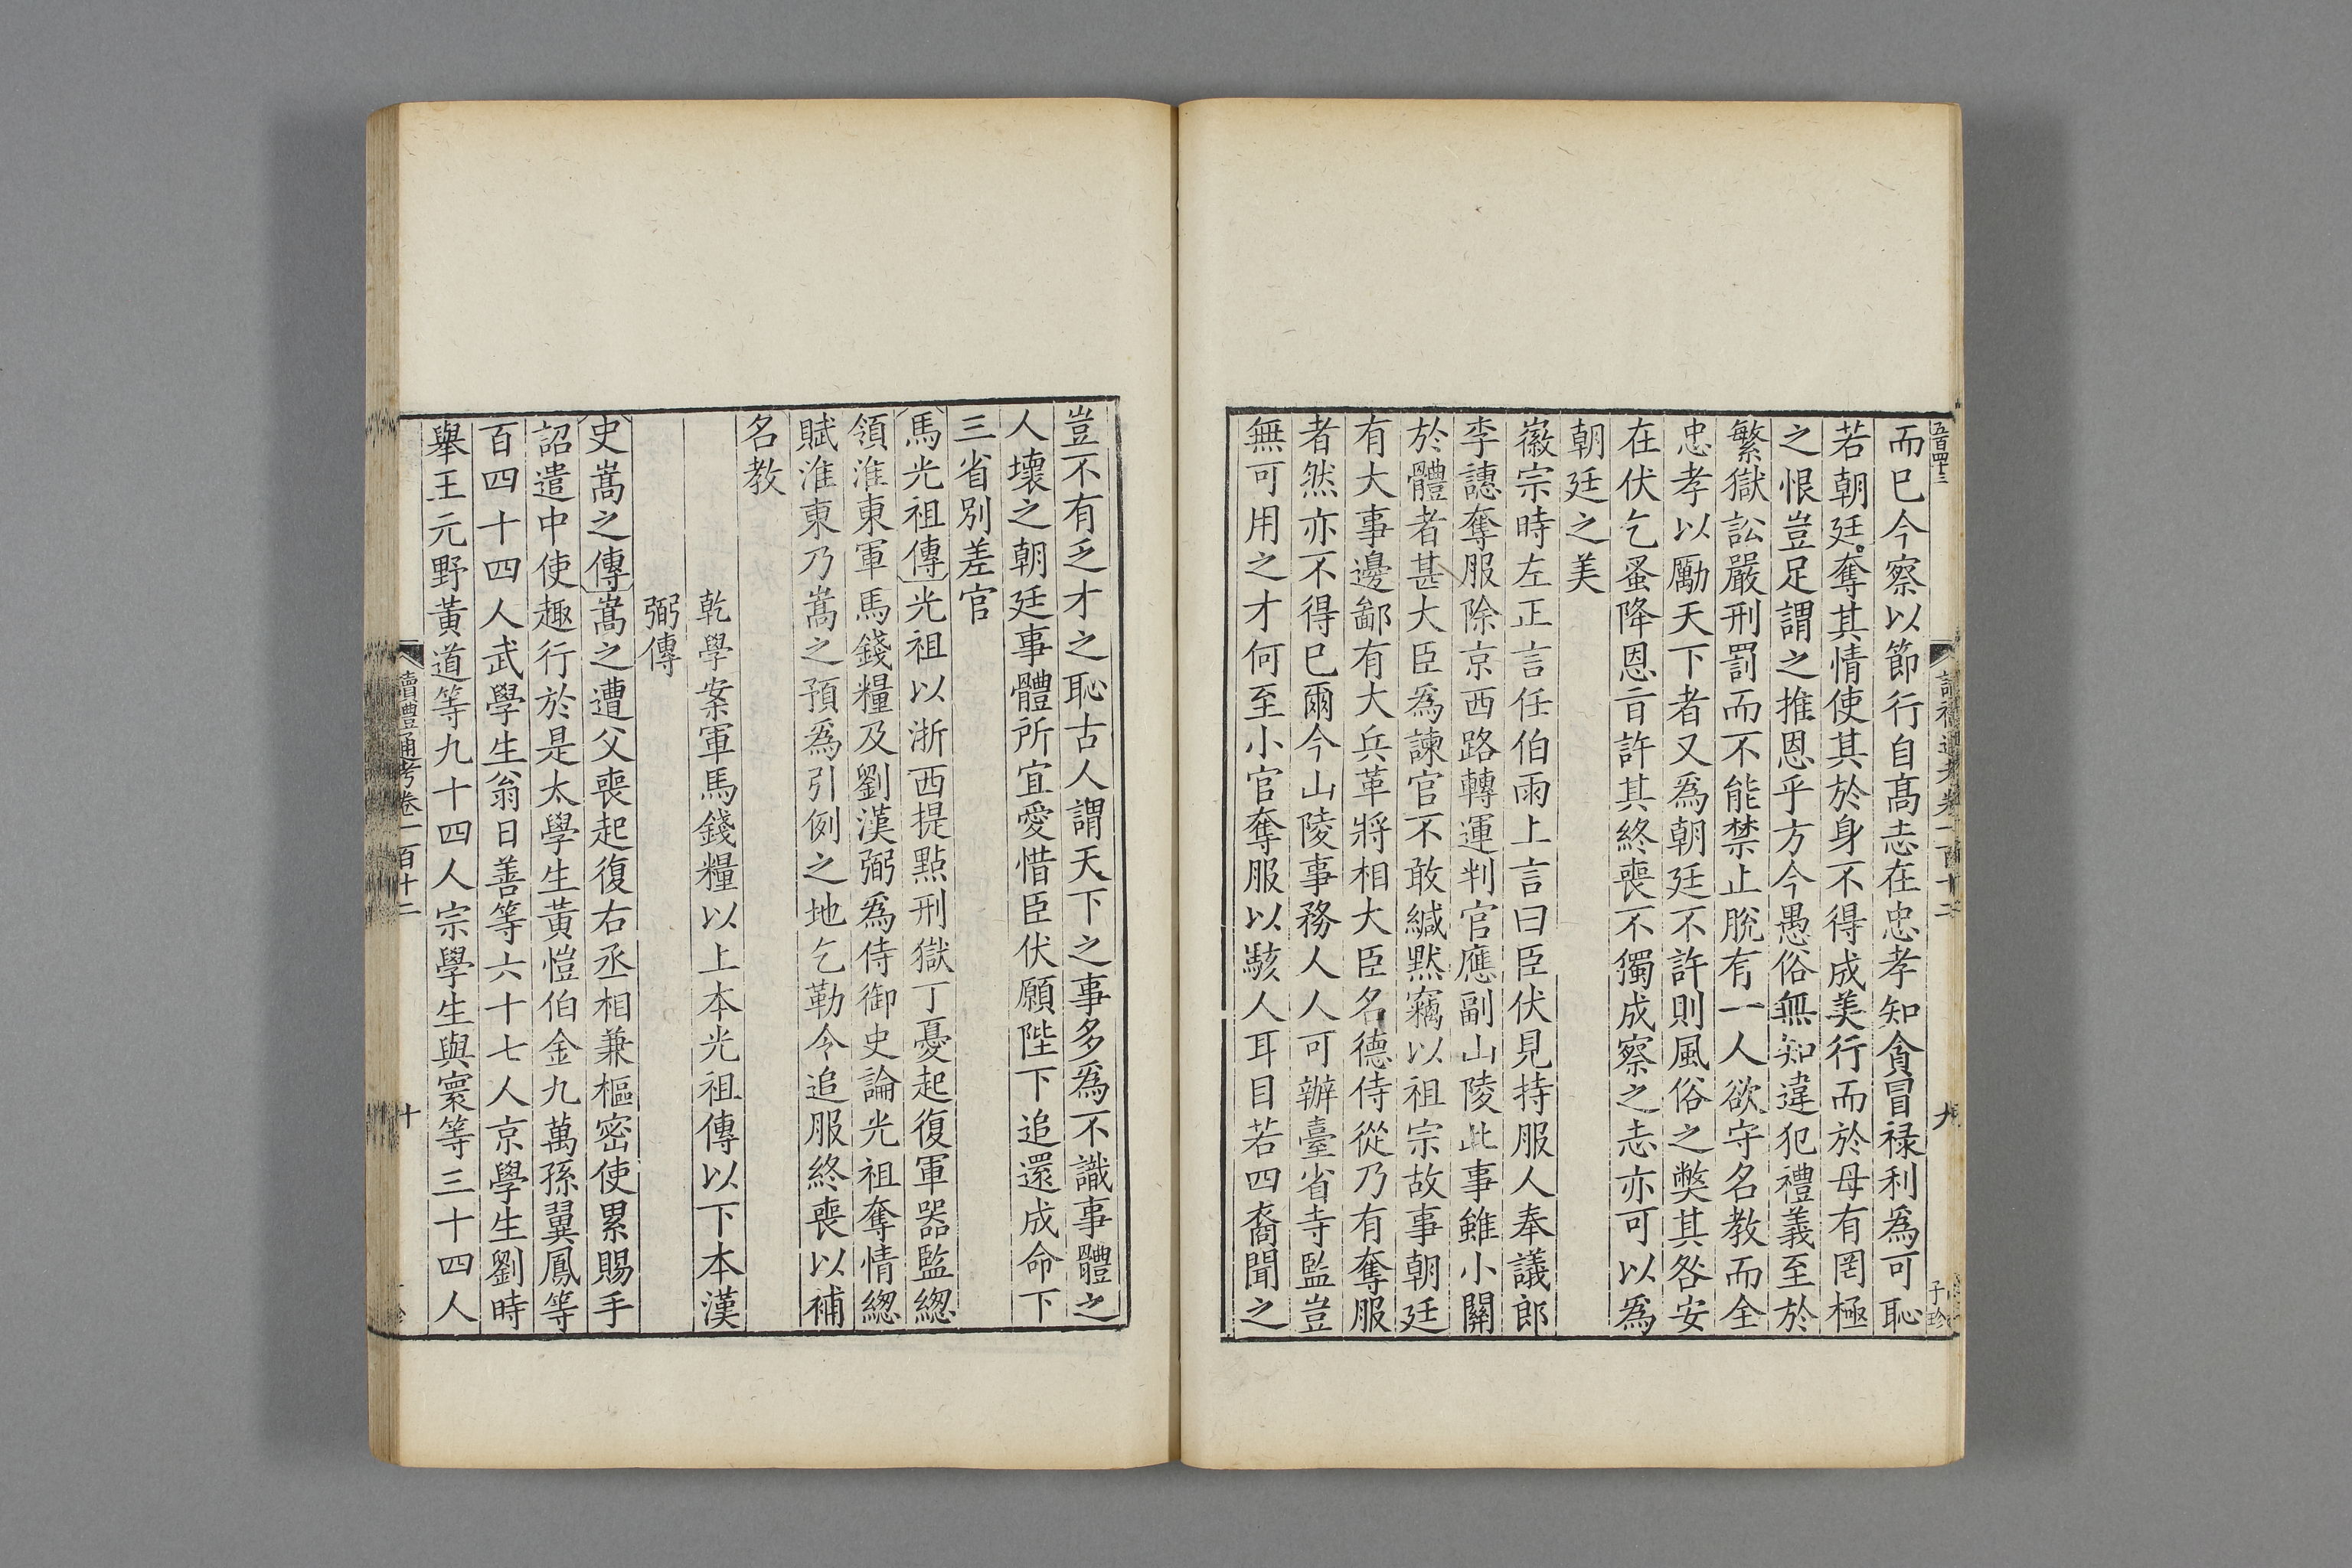 五百四十三
而已今察以節行自高志在忠孝知貪冒祿利爲可恥
若朝廷奪其情使其於身不得成美行而於母有罔極
之恨豈足謂之推恩乎方今愚俗無知違犯禮義至於
繁獄訟嚴刑罰而不能禁止脫有一人欲守名教而全
忠孝以勵天下者又爲朝廷不許則風俗之獘其咎安
在伏乞蚤降恩旨許其終喪不獨成察之志亦可以爲
朝廷之美
徽宗時左正言任伯雨上言曰臣伏見持服人奉議郎
李譓奪服除京西路轉運判官應副山陵此事雖小關
於體者甚大臣爲諫官不敢緘默竊以祖宗故事朝廷
有大事邊鄙有大兵革將相大臣名德侍從乃有奪服
者然亦不得已爾今山陵事務人人可辦臺省寺監豈
無可用之才何至小官奪服以駭人耳目若四裔聞之
讀禮通考卷一百十二
九
子珍
豈不有乏才之恥古人謂天下之事多爲不識事體之
人壞之朝廷事體所宜愛惜臣伏願陛下追還成命下
三省別差官
馬光祖傳光祖以浙西提點刑獄丁憂起復軍器監緫
領淮東軍馬錢糧及劉漢弼爲侍御史論光祖奪情緫
賦淮東乃嵩之預爲引例之地乞勒令追服終喪以補
名教
乾學案軍馬錢糧以上本光祖傳以下本漢
弼傳
史嵩之傳嵩之遭父喪起復右丞相兼樞密使累賜手
詔遣中使趣行於是太學生黃愷伯金九萬孫翼鳳等
百四十四人武學生翁日善等六十七人京學生劉時
舉王元野黃道等九十四人宗學生與寰等三十四人
讀禮通考卷一百十二
十